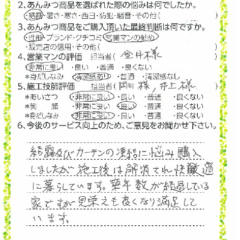 2.あんみつ商品を選ばれた際の悩みは何でしたか。
(結露・暑さ・寒さ・西日・防犯・騒音・その他)
3.あんみつ商品をご購入頂いた最終判断は何ですか。
性能・ブランド・クチコミ・営業マンの勧め
・販売店の信用・その他(
4.営業マンの評価 担当者( 金井様
非常に良い ・良い ・普通 ・悪くない
*身だしなみ 清潔感有り ・普通 ・清潔感なし
5.施工技師評価 担当者( 様・井上様
*あいさつ ・非常に良い ・良い ・普通 ・良くない
*笑顔 ・非常に良い ・良い ・普通 ・良くない
*身だしなみ ・非常に良い ・良い ・普通 ・良くない
6.今後のサービス向上のため、ご意見をお聞かせ下さい。
結露及びカーテンの凍結に悩み購入
しましたが施工後は解消され快適
に暮らしています。築年数が経過している
家ですが見栄えも良くなり満足して
います。